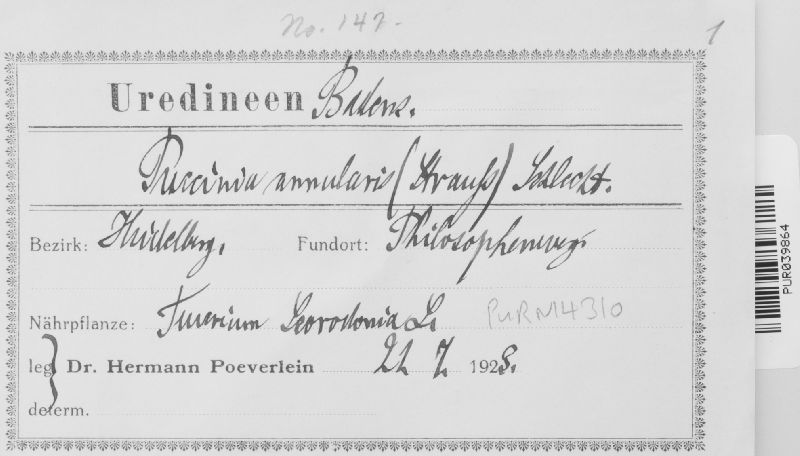 No. 147.
1
Uredineen Badens.
Puccinia annularis (Strauß) Schlecht.
Bezirk: Heidelberg. Fundort: Philosophenweg.
Nährpflanze: Teucrium Scorodonia L. PURN14310
leg. Dr. Hermann Poeverlein 21. 7. 1928.
determ.
PUR039864